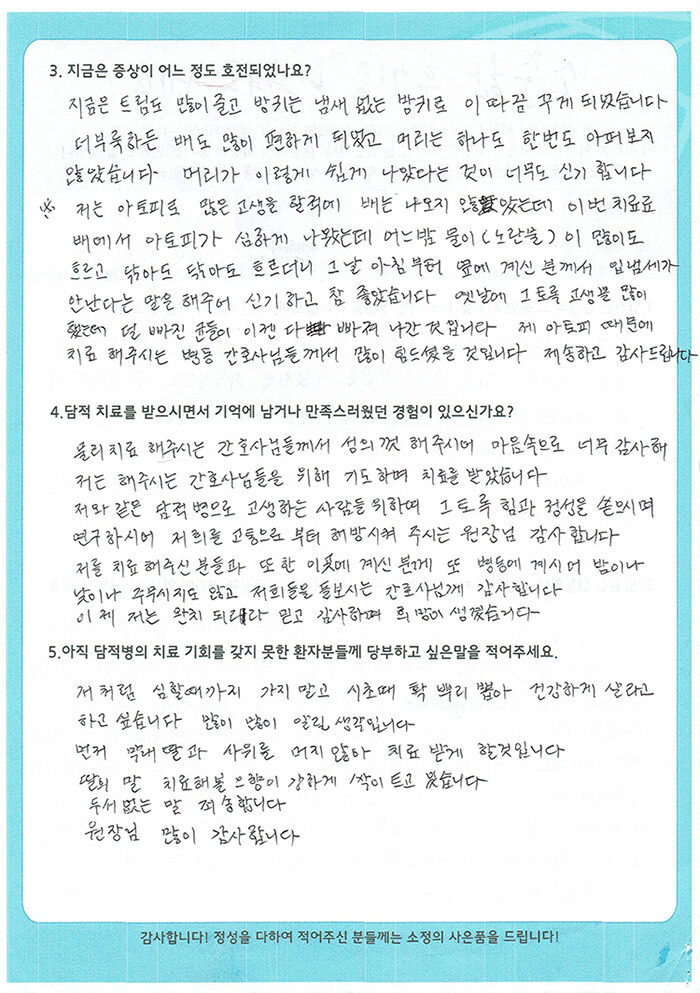 3. 지금은 증상이 어느 정도 호전되었나요?
지금은 트림도 많이 줄고 방귀는 냄새 없는 방귀로 이따끔 꾸게 되었습니다
더부룩하든 배도 많이 편하게 되었고 머리는 하나도 한번도 아퍼보지
않았습니다 머리가 이렇게 쉽게 나았다는 것이 너무도 신기 합니다
※ 저는 아토피로 많은 고생을 할적에 배는 나오지 않았는데 이번 치료로
배에서 아토피가 심하게 나왔는데 어느밤 물이 (노란물) 이 많이도
흐르고 닦아도 닦아도 흐르더니 그날 아침부터 옆에 계신 분께서 입냄세가
안난다는 말을 해주어 신기하고 참 좋았습니다 옛날에 그토록 고생을 많이
했는데 덜 빠진 균들이 이켄 다 빠져 나간 것입니다 제 아토피 때문에
치료 해주시는 병동 간호사님들께서 많이 힘드셨을 것입니다 제송하고 감사드립니다
4.담적 치료를 받으시면서 기억에 남거나 만족스러웠던 경험이 있으신가요?
물리치료 해주시는 간호사님들께서 성의껏 해주시어 마음속으로 너무 감사해
저는 해주시는 간호사님들을 위해 기도하며 치료를 받았습니다
저와 같은 담적병으로 고생하는 사람들을 위하여 그토록 힘과 정성을 쏟으시며
연구하시어 저희를 고통으로 부터 해방시켜 주시는 원장님 감사 합니다
저를 치료해주신 분들과 또한 이곳에 계신 분께 또 병동에 계시며 밤이나
낮이나 주무시지도 않고 저희들을 돌보시는 간호사님께 감사합니다
이제 저는 완치 되리라 믿고 감사하며 희망이 생겼습니다
5.아직 담적병의 치료 기회를 갖지 못한 환자분들께 당부하고 싶은말을 적어주세요.
저처럼 심할때까지 가지말고 시초때 확 뿌리 뽑아 건강하게 살라고
하고 싶습니다 많이 많이 알릴 생각입니다
먼저 막래딸과 사위를 머지않아 치료 받게 할것입니다
딸의 말 치료해볼 으향이 강하게 싹이 트고 있습니다
두서없는 말 죄송합니다
원장님 많이 감사합니다
감사합니다! 정성을 다하여 적어주신 분들께는 소정의 사은품을 드립니다!